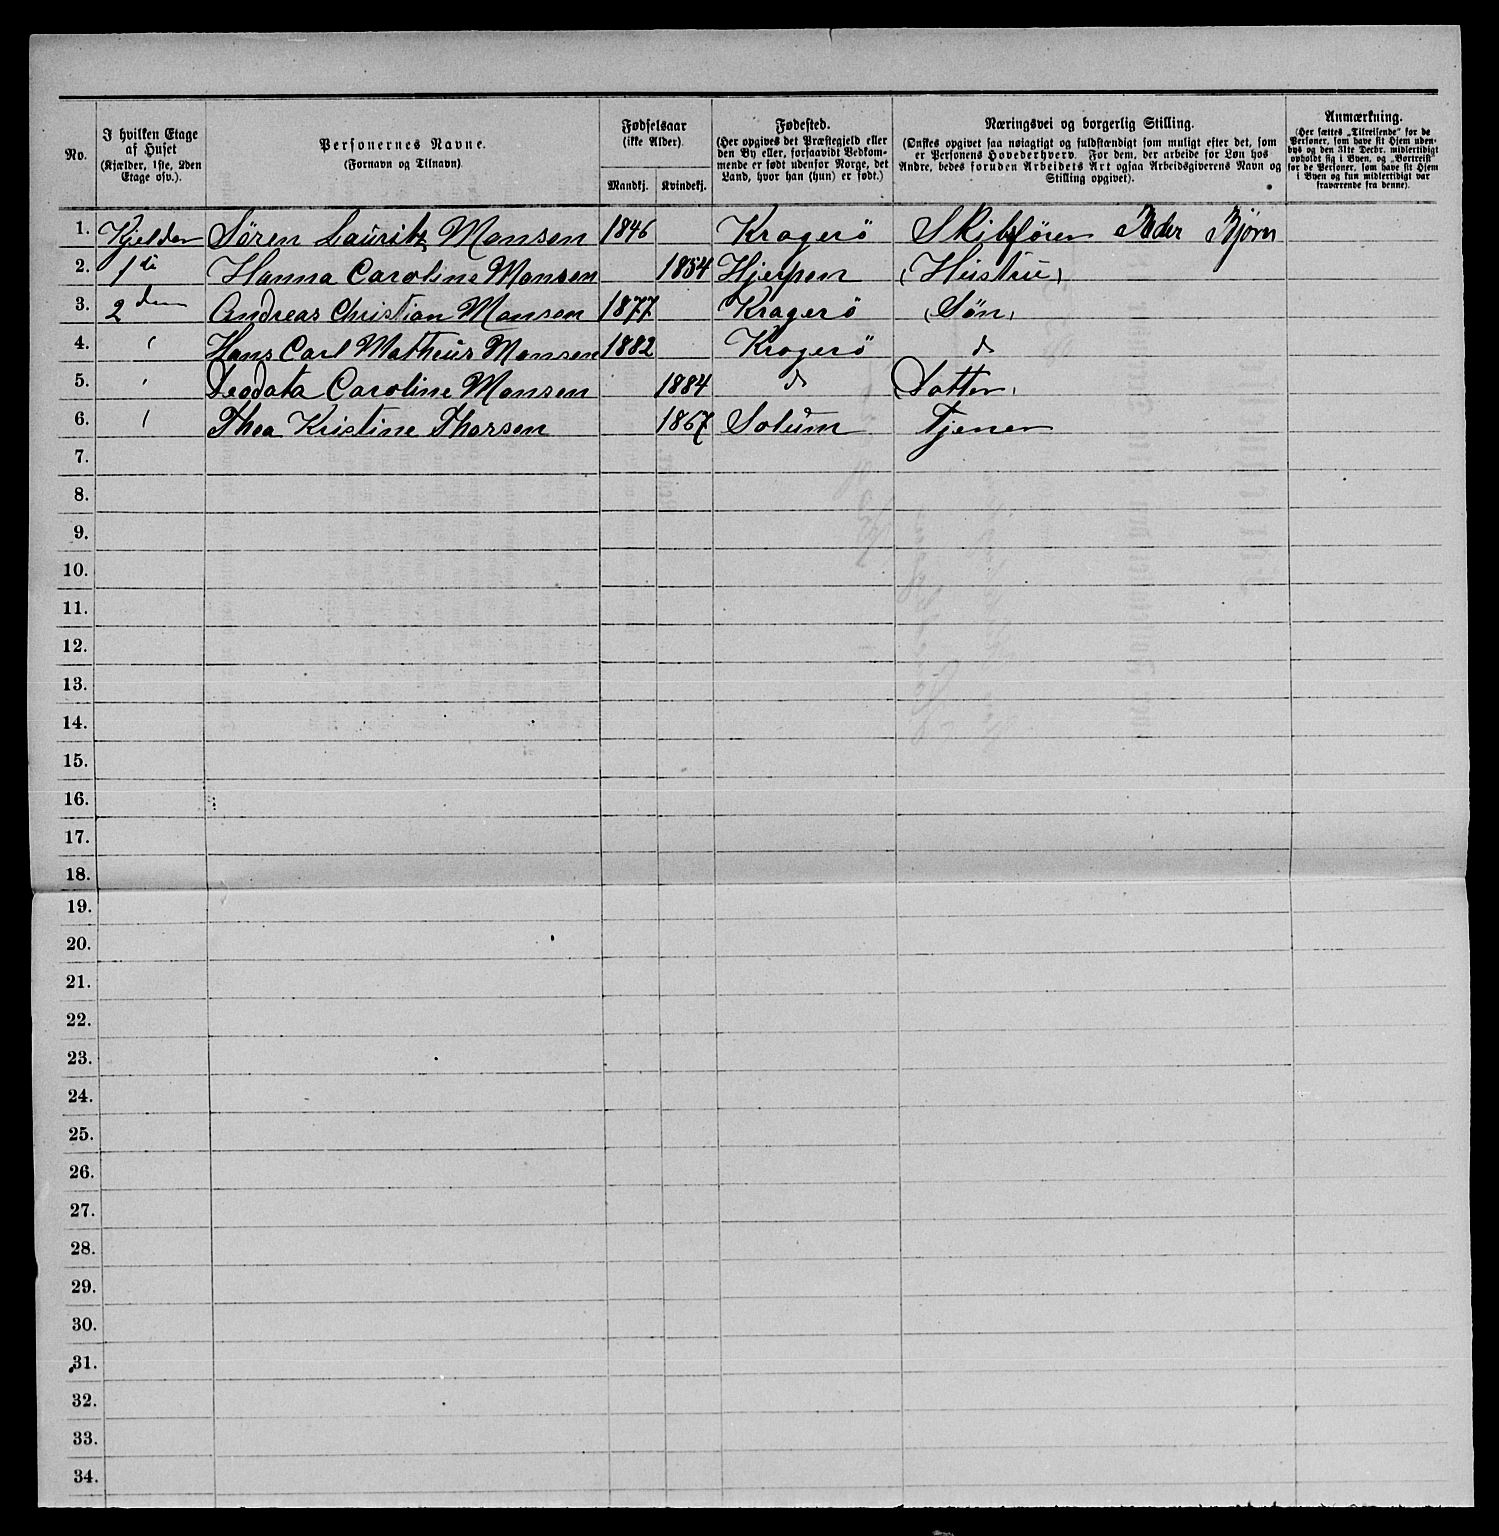 No.
I hvilken Etage af Huset (Kjælder, 1ste, 2den Etage osv.).
Personernes Navne. (Fornavn og Tilnavn)
Fødselsaar (ikke Alder).
Mandkj. Kvindekj.
Fødested. (Her opgives det Præstegjeld eller den By eller, forsaavidt Vedkommende er født udenfor Norge, det Land, hvor han (hun) er født.)
Næringsvei og borgerlig Stilling. (Ønskes opgivet saa nøiagtigt og fuldstændigt som muligt efter det, som er Personens Hovederhverv. For dem, der arbeide for Løn hos Andre, bedes foruden Arbeidets Art ogsaa Arbeidsgiverens Navn og Stilling opgivet).
Anmærkning. (Her sættes „Tilreisende" for de Personer, som have sit Hjem udenbys og den 31te Decbr. midlertidigt opholdt sig i Byen, og „Bortreist" for de Personer, som have sit Hjem i Byen og kun midlertidigt var fraværende fra denne).
1. Kjelder Søren Lauritz Monsen 1846 Kragerö Skibsfører Peder Bjørn
2. 1ste Hanna Caroline Monsen 1854 Hjerpen (Hustru)
3. 2den Andreas Christian Monsen 1877 Kragerö (Søn)
4. " Hans Carl Matheus Monsen 1882 Kragerö do
5. " Leodata Caroline Monsen 1884 do (Datter)
6. " Thea Kristine Thorsen 1867 Solum Tjener
7.
8.
9.
10.
11.
12.
13.
14.
15.
16.
17.
18.
19.
20.
21.
22.
23.
24.
25.
26.
27.
28.
29.
30.
31.
32.
33.
34.